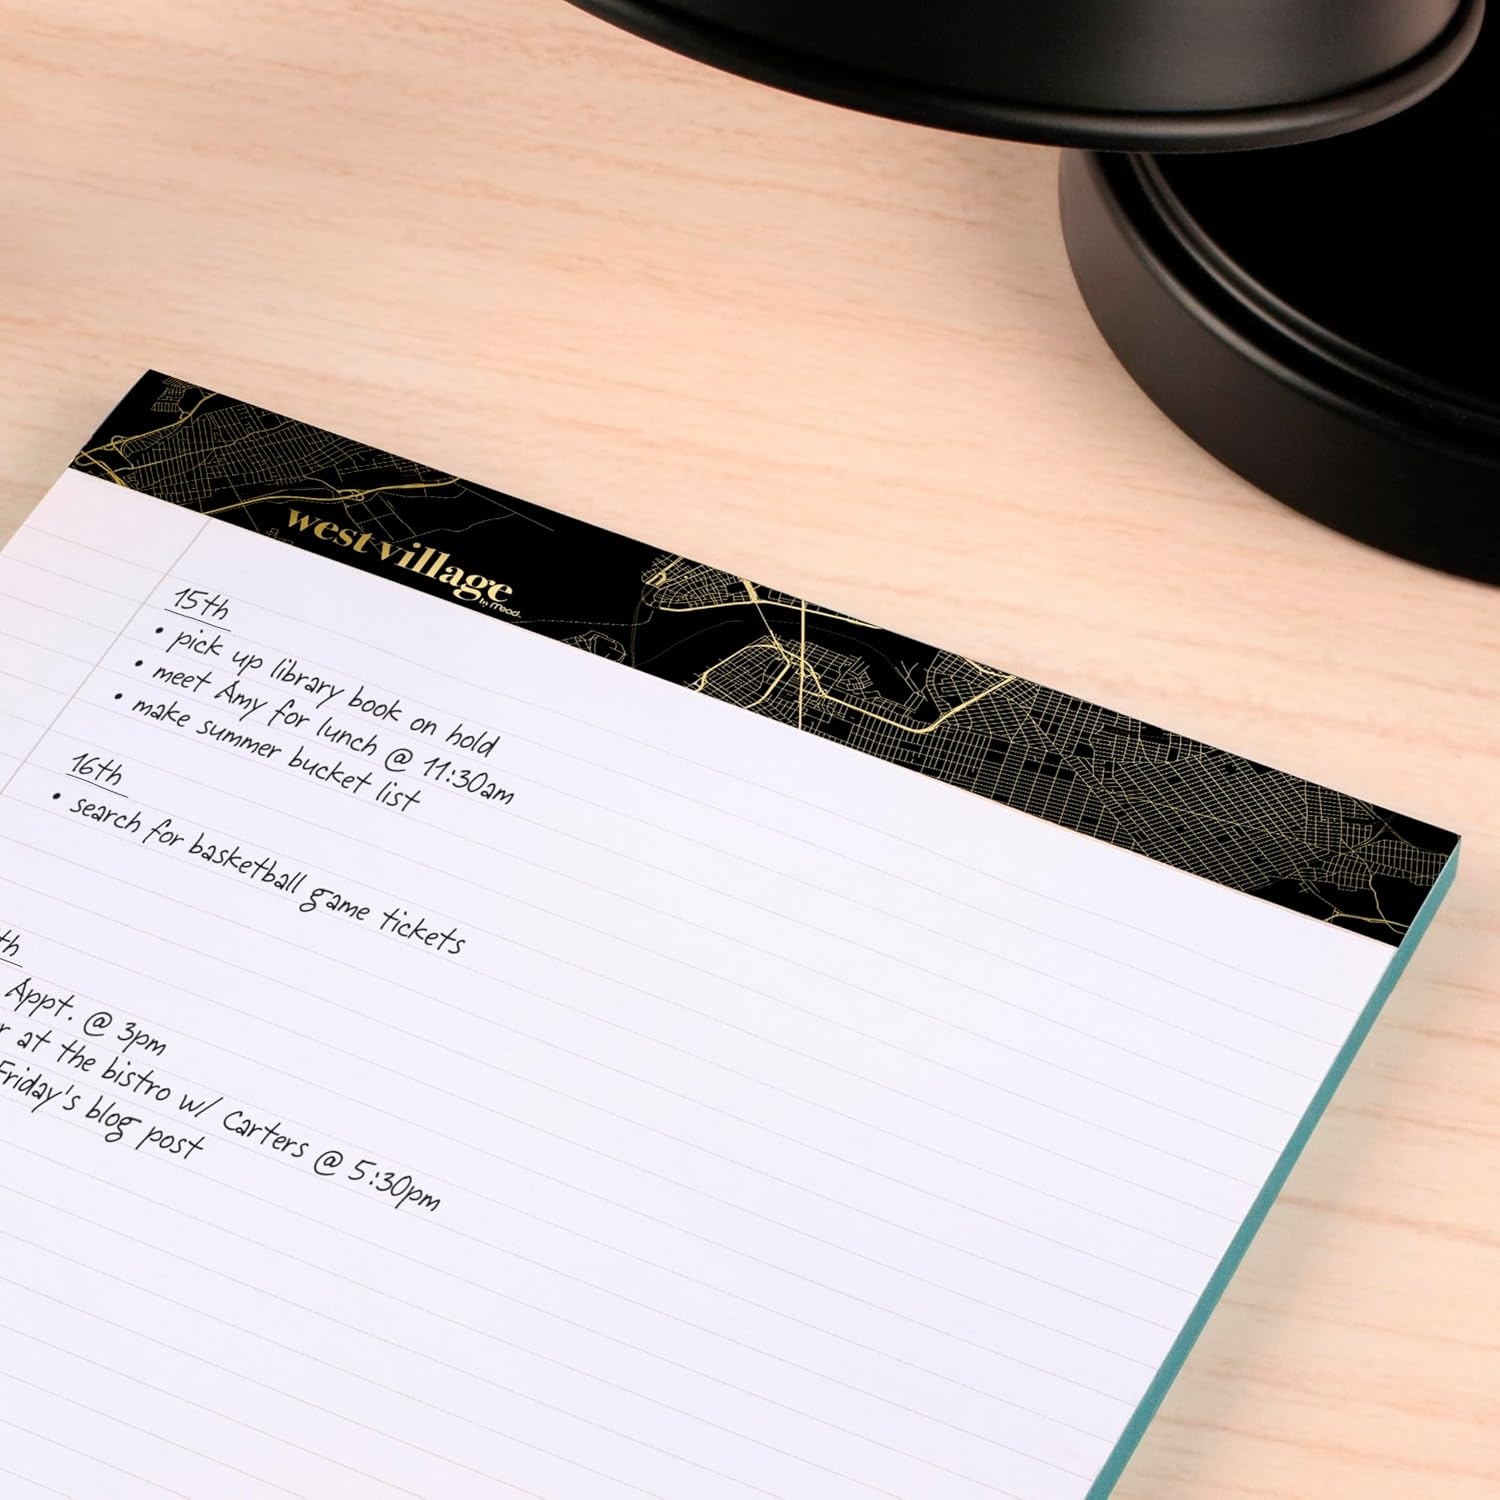 west village
by mead.
15th
• pick up library book on hold
• meet Amy for lunch @ 11:30am
• make summer bucket list
16th
• search for basketball game tickets
th
Appt. @ 3pm
r at the bistro w/ Carters @ 5:30pm
Friday's blog post